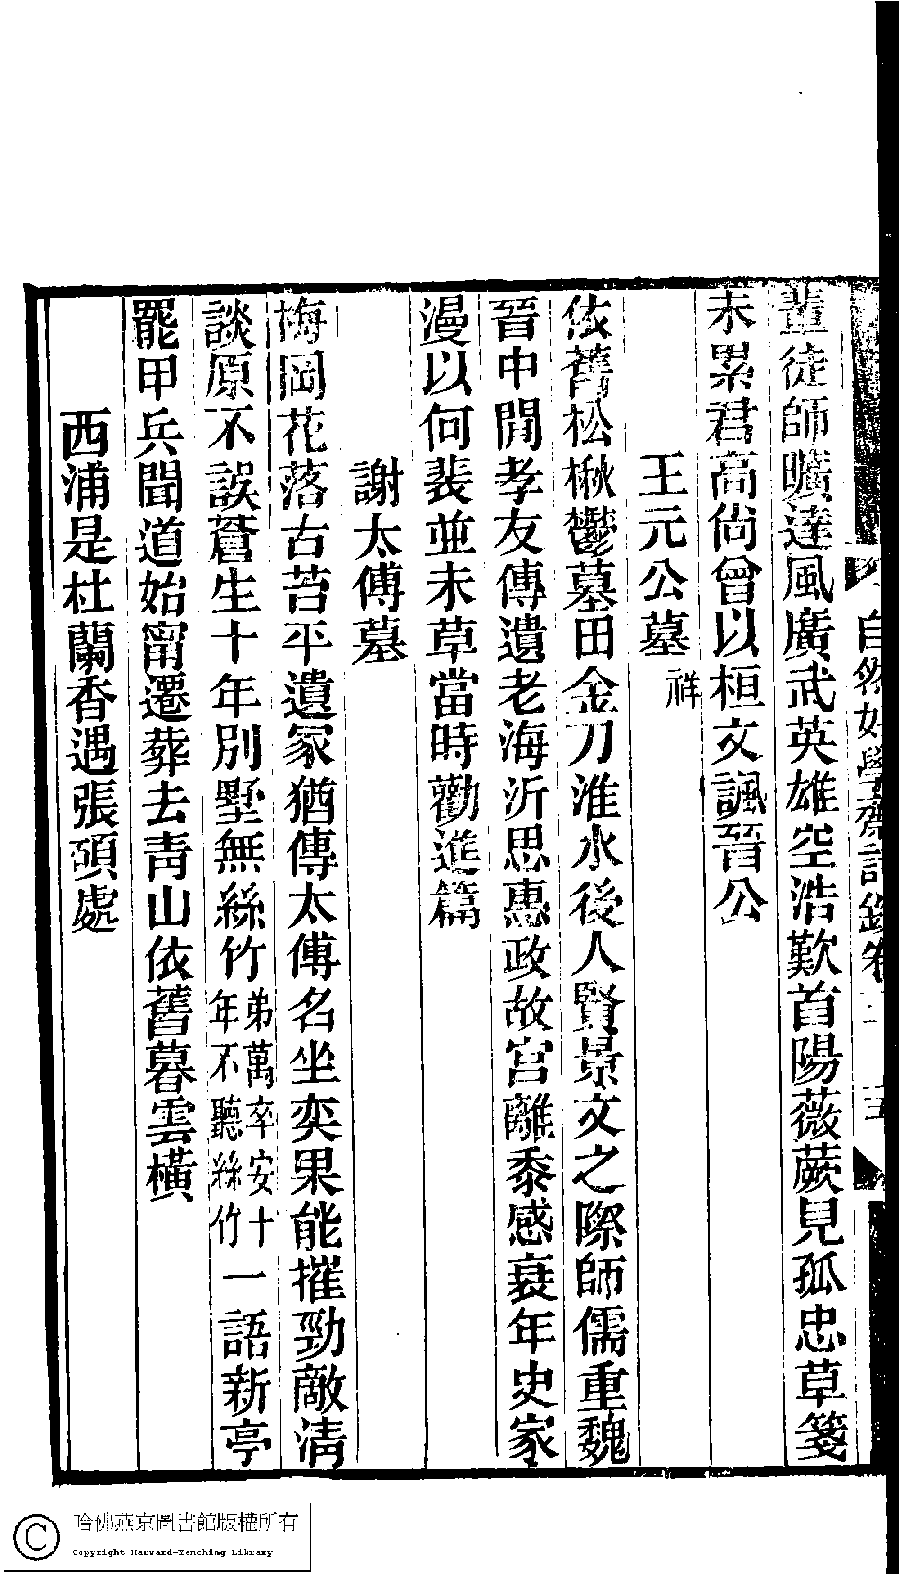 自然好學齋詩鈔卷二 十五
輩徒師曠達風廣武英雄空浩歎首陽薇蕨見孤忠草箋
未累君高尚曾以桓文諷晉公
王元公墓祥
依舊松楸鬱墓田金刀淮水後人賢景文之際師儒重魏
晉中閒孝友傳遺老海沂思惠政故宮離黍感衰年史家
漫以何裴並未草當時勸進篇
謝太傅墓
梅岡花落古苔平遺冢猶傳太傅名坐奕果能摧勁敵淸
談原不誤蒼生十年別墅無絲竹弟萬卒安十年不聽絲竹一語新亭
罷甲兵聞道始甯遷葬去靑山依舊暮雲橫
西浦是杜蘭香遇張碩處
哈佛燕京圖書館版權所有
Copyright Harvard-Yenching Library